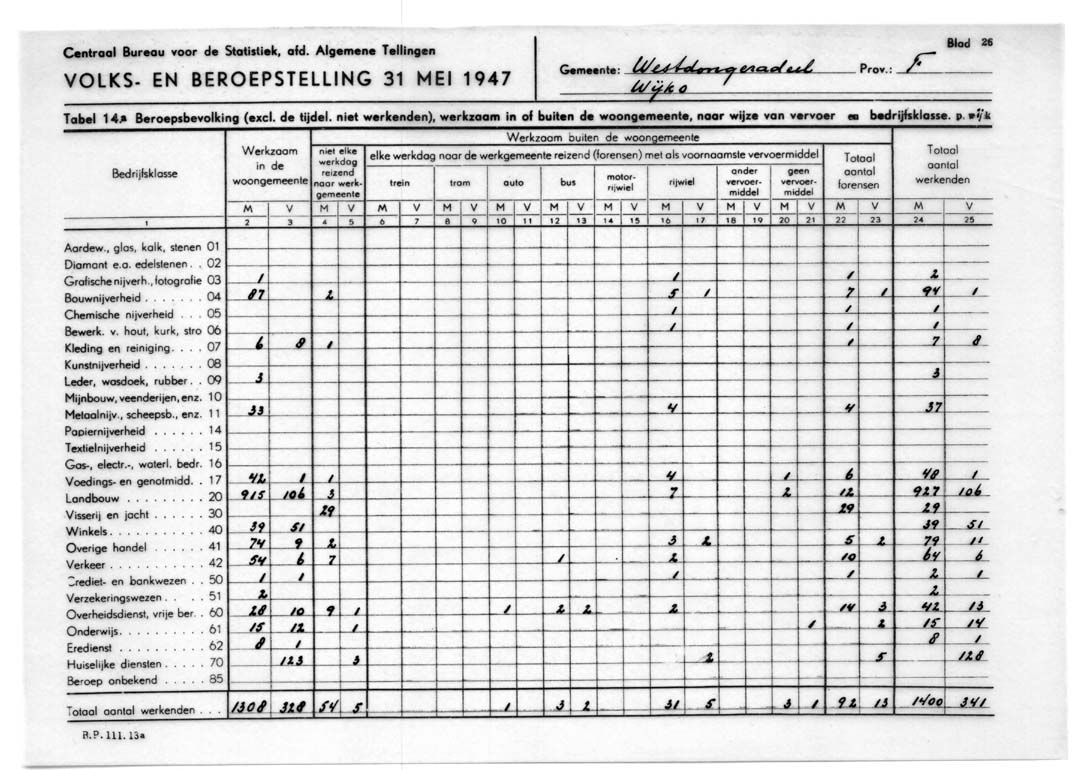 Centraal Bureau voor de Statistiek, afd. Algemene Tellingen
VOLKS- EN BEROEPSTELLING 31 MEI 1947
Blad 26
Gemeente: Westdongeradeel Prov.: F
Wijk 0
Tabel 14a Beroepsbevolking (excl. de tijdel. niet werkenden), werkzaam in of buiten de woongemeente, naar wijze van vervoer en bedrijfsklasse. p. wijk
Bedrijfsklasse
Werkzaam in de woongemeente
Werkzaam buiten de woongemeente
niet elke werkdag reizend naar werkgemeente
elke werkdag naar de werkgemeente reizend (forensen) met als voornaamste vervoermiddel
trein tram auto bus motor-rijwiel rijwiel ander vervoer-middel geen vervoer-middel
Totaal aantal forensen
Totaal aantal werkenden
M V M V M V M V M V M V M V M V M V M V M V M V
1 2 3 4 5 6 7 8 9 10 11 12 13 14 15 16 17 18 19 20 21 22 23 24 25
Aardew., glas, kalk, stenen 01
Diamant e.a. edelstenen . . 02
Grafische nijverh., fotografie 03 1 1 1 2
Bouwnijverheid . . . . . . . 04 87 2 5 1 7 1 94 1
Chemische nijverheid . . . 05 1 1 1
Bewerk. v. hout, kurk, stro 06 1 1 1
Kleding en reiniging. . . . 07 6 8 1 1 7 8
Kunstnijverheid . . . . . . . 08
Leder, wasdoek, rubber. . 09 3 3
Mijnbouw, veenderijen, enz. 10
Metaalnijv., scheepsb., enz. 11 33 4 4 37
Papiernijverheid . . . . . . 14
Textielnijverheid . . . . . . 15
Gas-, electr.-, waterl. bedr. 16
Voedings- en genotmidd. . 17 42 1 1 4 1 6 48 1
Landbouw . . . . . . . . . 20 915 106 3 7 2 12 927 106
Visserij en jacht . . . . . . 30 29 29 29
Winkels . . . . . . . . . . . 40 39 51 39 51
Overige handel . . . . . . . 41 74 9 2 3 2 5 2 79 11
Verkeer . . . . . . . . . . . 42 54 6 7 1 2 10 64 6
Crediet- en bankwezen . . 50 1 1 1 1 2 1
Verzekeringswezen . . . . 51 2 2
Overheidsdienst, vrije ber. . 60 28 10 9 1 1 2 2 2 14 3 42 13
Onderwijs. . . . . . . . . . 61 15 12 1 1 2 15 14
Eredienst . . . . . . . . . . 62 8 1 8 1
Huiselijke diensten . . . . . 70 123 3 2 5 128
Beroep onbekend . . . . . 85
Totaal aantal werkenden . . . 1308 328 54 5 1 3 2 31 5 3 1 92 13 1400 341
R.P. 111. 13a